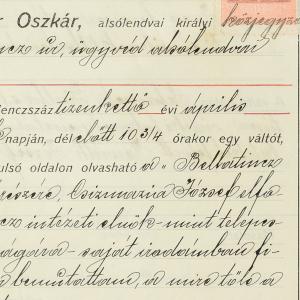 r Oszkár, alsólendvai királyi közjegyző
ncz úr, ügyvéd alsólendvai
lenczszáz tizenkettő évi április
napján, dél előtt 10 3/4 órakor egy váltót,
ulsó oldalon olvasható a „Bellatincz
részére, Csizmazia József elfo
cz intézeti elnök - mint teleps
ágára - saját irodámban fi
bemutattam, a mire tőle a